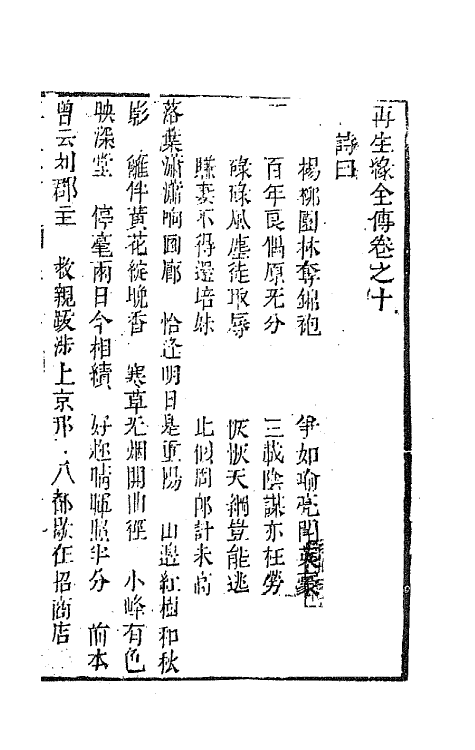 再生緣全傳卷之十
詩曰
楊柳園林奪錦袍 爭如瑜亮鬥英豪
百年良偶原无分 三載陰謀亦枉勞
碌碌風塵徒取辱 恢恢天網豈能逃
賺妻不得還培妹 此個周郎計未高
落葉瀟瀟响回廊 恰逢明日是重陽 山邊紅樹和秋
影 籬伴黃花從晚香 寒草无烟開曲徑 小峰有色
映深堂 停毫雨日今相續 好趂晴暉照半分 前本
曾云刘郡主 救親跋涉上京邢 八都歇在招商店